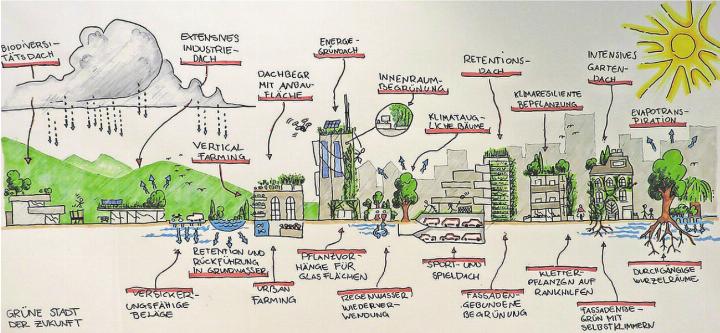 BIODIVERSI-
TÄTSDACH
EXTENSIVES
INDUSTRIE-
DACH
DACHBEGR
MIT ANBAU-
FLÄCHE
VERTICAL
FARMING
ENERGIE-
GRÜNDACH
INNENRAUM-
BEGRÜNUNG
KLIMATAUG-
LICHE BÄUME
RETENTIONS-
DACH
KLIMARESILIENTE
BEPFLANZUNG
INTENSIVES
GARTEN-
DACH
EVAPOTRANS-
PIRATION
VERSICKER-
UNGSFÄHIGE
BELÄGE
RETENTION UND
RÜCKFÜHRUNG
IN GRUNDWASSER
URBAN
FARMING
PFLANZVOR-
HÄNGE FÜR
GLASFLÄCHEN
REGENWASSER
WIEDERVER-
WENDUNG
SPORT- UND
SPIELDACH
FASSADEN-
GEBUNDENE
BEGRÜNUNG
KLETTER-
PFLANZEN AUF
RANKHILFEN
FASSADENBE-
GRÜN MIT
SELBSTKLIMMERN
DURCHGÄNGIGE
WURZELRÄUME
GRÜNE STADT
DER ZUKUNFT